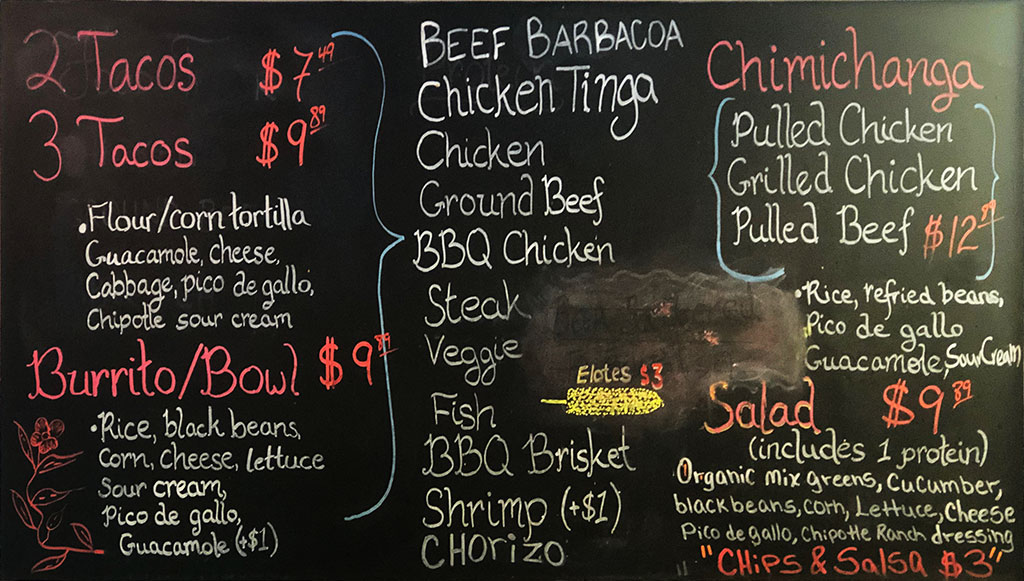 2 Tacos $7.49
3 Tacos $9.89
• Flour/corn tortilla
Guacamole, cheese,
Cabbage, pico de gallo,
Chipotle sour cream
Burrito/Bowl $9.89
• Rice, black beans,
Corn, Cheese, lettuce
Sour cream,
Pico de gallo,
Guacamole (+$1)
BEEF BARBACOA
Chicken Tinga
Chicken
Ground Beef
BBQ Chicken
Steak
Veggie
Elotes $3
Fish
BBQ Brisket
Shrimp (+$1)
CHORIZO
Chimichanga
Pulled Chicken
Grilled Chicken
Pulled Beef $12
• Rice, refried beans,
Pico de gallo
Guacamole, Sour Cream
Salad $9.89
(includes 1 protein)
Organic mix greens, Cucumber,
black beans, corn, Lettuce, Cheese
Pico de gallo, Chipotle Ranch dressing
"CHIPS & SALSA $3"